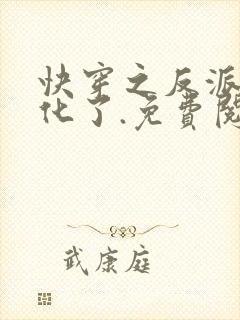 快穿之反派
化了.免費閱
武康庭